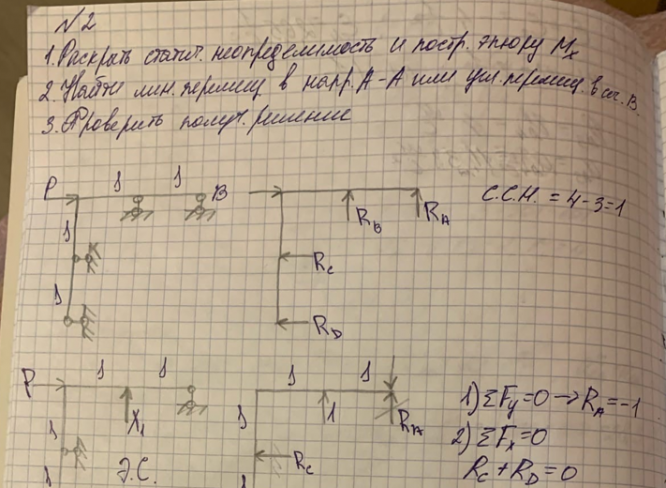 №2
1. Раскрыть статич. неопределимость и постр. эпюру Mx
2. Найти лин. перемещ в напр. A-A или угл. перемещ. в сеч. B.
3. Проверить получ. решение
P 1 1 B
1
1
RB RA
RC
RD
С.С.Н. = 4-3=1
P 1 1
1
X1
Э.С.
1 1
1
1
RA
RC
1) ΣFy=0 → RA=-1
2) ΣFx=0
RC+RD=0